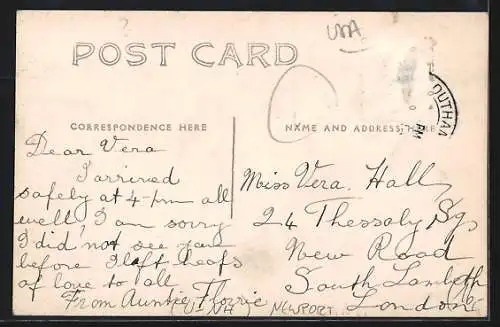 USA
POST CARD
OUTHAM
PM
CORRESPONDENCE HERE
NAME AND ADDRESS HERE
Dear Vera
I arrived
safely at 4-pm all
well, I am sorry
I did not see you
before I left heafs
of love to all
From Auntie Florrie
Miss Vera Hall
24 Thessaly Sq.
New Road
South Lambeth
London
NEWPORT